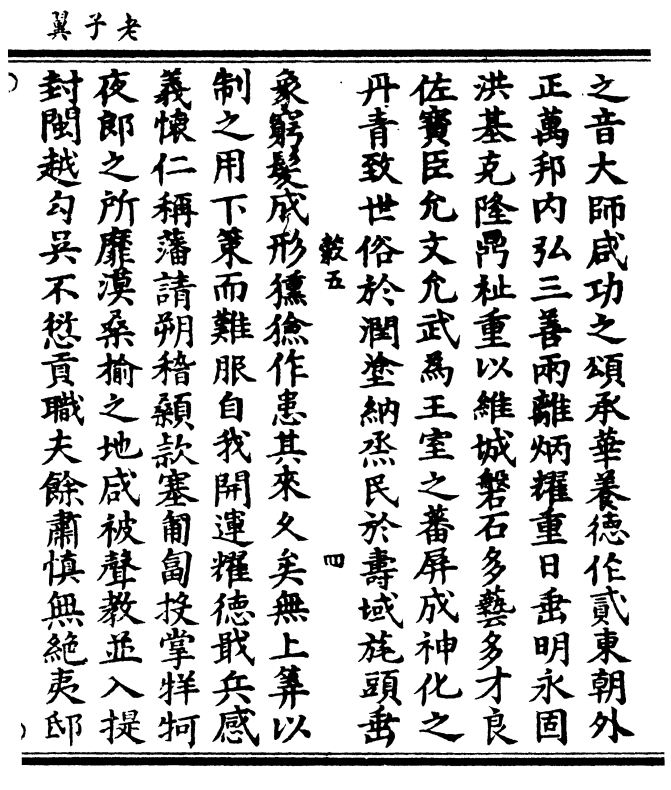 老子翼
之音大師咸功之頌承華養德作貳東朝外
正萬邦内弘三善兩離炳耀重日垂明永固
洪基克隆鼎祉重以維城磐石多藝多才良
佐寶臣允文允武為王室之蕃屏成神化之
丹青致世俗於潤塗納烝民於壽域旄頭垂
穀五
四
象窮髮成形獯獫作患其來久矣無上筭以
制之用下策而難服自我開運耀德戢兵感
義懷仁稱藩請朔稽顙款塞匍匐投掌牂牁
夜郎之所靡漠桑榆之地咸被聲教並入提
封閩越勾吳不愆貢職夫餘肅慎無絶夷邸